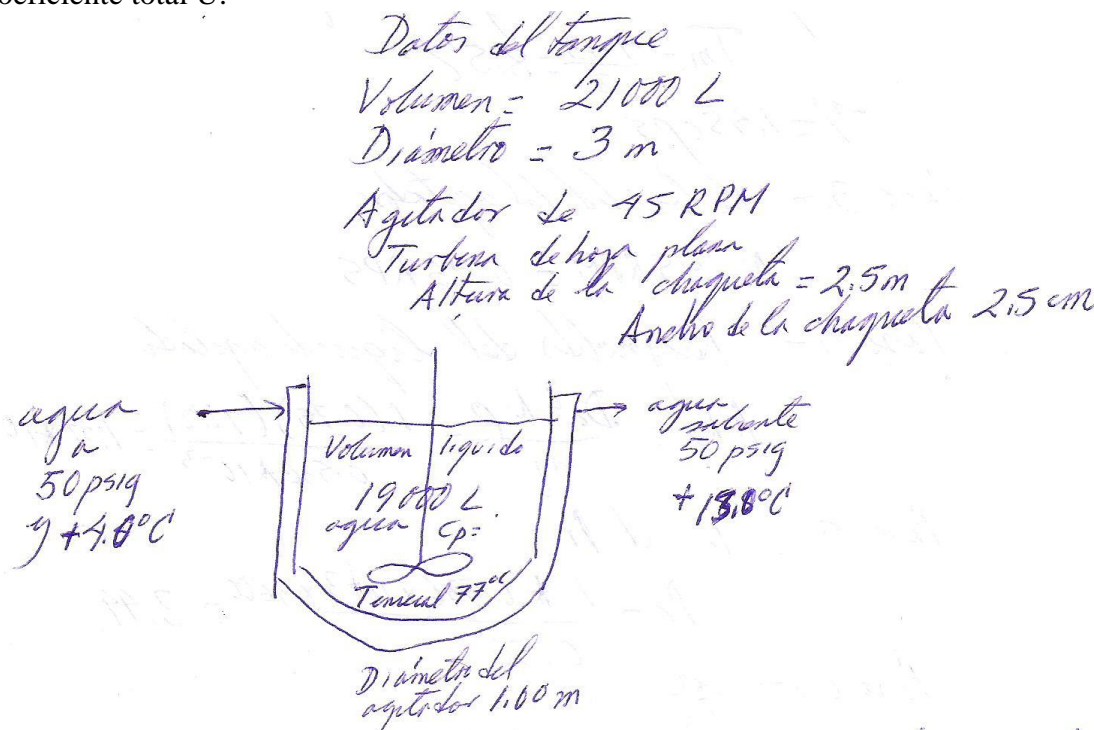 coeficiente total U.
Datos del tanque
Volumen = 21000 L
Diámetro = 3 m
Agitador de 45 RPM
Turbina de hoja plana
Altura de la chaqueta = 2.5m
Ancho de la chaqueta 2.5 cm
agua
a
50 psig
y +4.0°C
Volumen liquido
19000 L
agua Cp=
77°C
agua
saliente
50 psig
Diámetro del
agitador 1.00 m